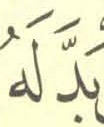 بَدَّلَهُ